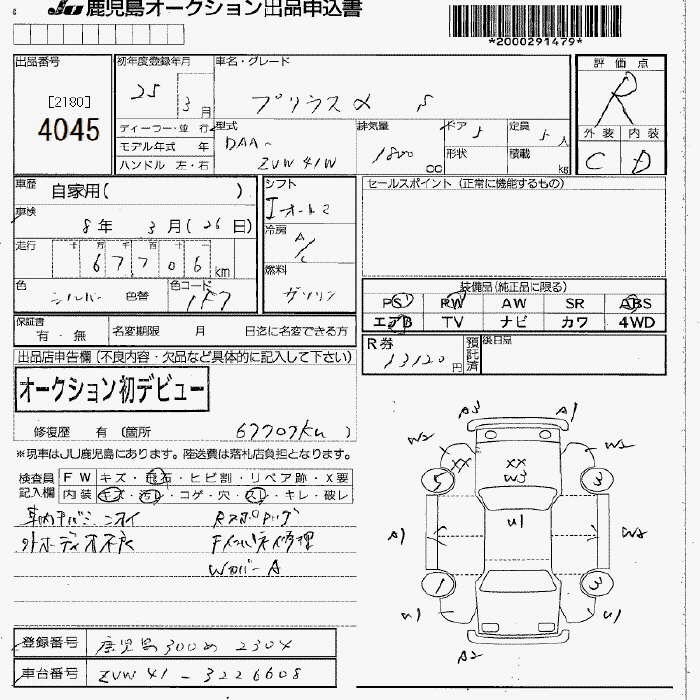 JU 鹿児島オークション出品申込書
*2000291479*
出品番号
[2180]
4045
初年度登録年月
25
3月
車名・グレード
プリウスα S
ディーラー・並行
モデル年式 年
ハンドル 左・右
型式
DAA-
ZVW41W
排気量
1800
cc
ドア 5
形状
定員
5人
積載
kg
評価点
R
外装 内装
C D
車歴
自家用( )
車検
8年 3月(26日)
走行
十 万 千 百 十 一
67706 km
色
シルバー 色替
色コード
1F7
シフト
Iオートマ
冷房
A/C
燃料
ガソリン
セールスポイント (正常に機能するもの)
装備品(純正品に限る)
PS PW AW SR ABS
エアB TV ナビ カワ 4WD
保証書
有・無
名変期限 月 日迄に名変できる方
R券
13120円
預託済
後日品
出品店申告欄(不良内容・欠品など具体的に記入して下さい)
オークション初デビュー
修復歴 有 (箇所 67707km )
※現車はJU鹿児島にあります。陸送費は落札店負担となります。
検査員記入欄
FW キズ・飛石・ヒビ割・リペア跡・X要
内装 キズ・汚れ・コゲ・穴・スレ・キレ・破レ
Wカバー A
A3 A1
W2 W2
XX XX
W3
5 3
U1
A1 W2
1 3
U1 U1
A2
登録番号 鹿児島300め 2304
車台番号 ZVW41-3226608